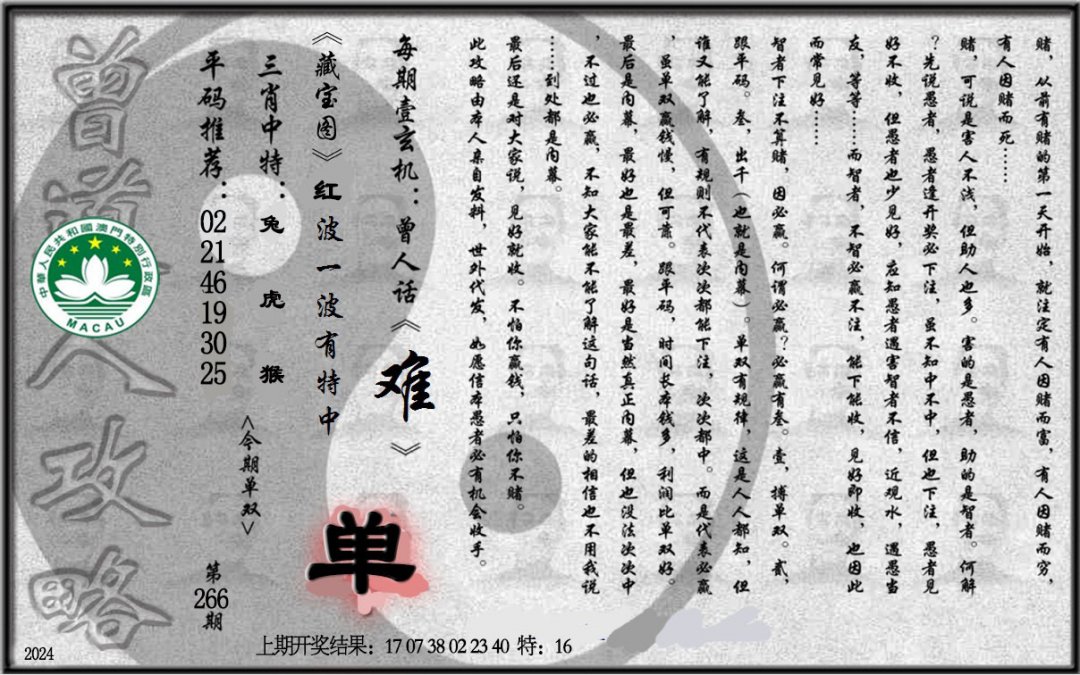 赌，从前有赌的第一天开始，就注定有人因赌而富，有人因赌而穷，
有人因赌而死……
赌，可说是害人不浅，但助人也多。害的是愚者，助的是智者。何解
？先说愚者，愚者逢开奖必下注，虽不知中不中，但也下注，愚者见
好不收，但愚者也少见好，应知愚者遇害智者不信，近观水，遇愚当
友，等等……而智者，不智必赢不注，能下能收，见好即收，也因此
而常见好……
智者下注不算赌，因必赢。何谓必赢？必赢有叁。壹，搏单双。贰，
跟平码。叁，出千（也就是内幕）。单双有规律，这是人人都知，但
谁又能了解，有规则不代表次次都能下注，次次都中。而是代表必赢
，虽单双赢钱慢，但可靠。跟平码，时间长本钱多，利润比单双好。
最后是内幕，最好也是最差，最好是当然真正内幕，但也没法次次中
，不过也必赢，不知大家能不能了解这句话，最差的相信也不用我说
……到处都是内幕。
最后还是对大家说，见好就收。不怕你赢钱，只怕你不赌。
此攻略由本人亲自发料，世外代发，如愿信本愚者必有机会收手。
每期壹玄机：曾人话《难》
《藏宝图》红波一波有特中
三肖中特：兔 虎 猴
<今期单双>
单
平码推荐：02 21 46 19 30 25
第266期
曾道人攻略
中華人民共和國澳門特別行政區
MACAU
上期开奖结果：17 07 38 02 23 40 特：16
2024